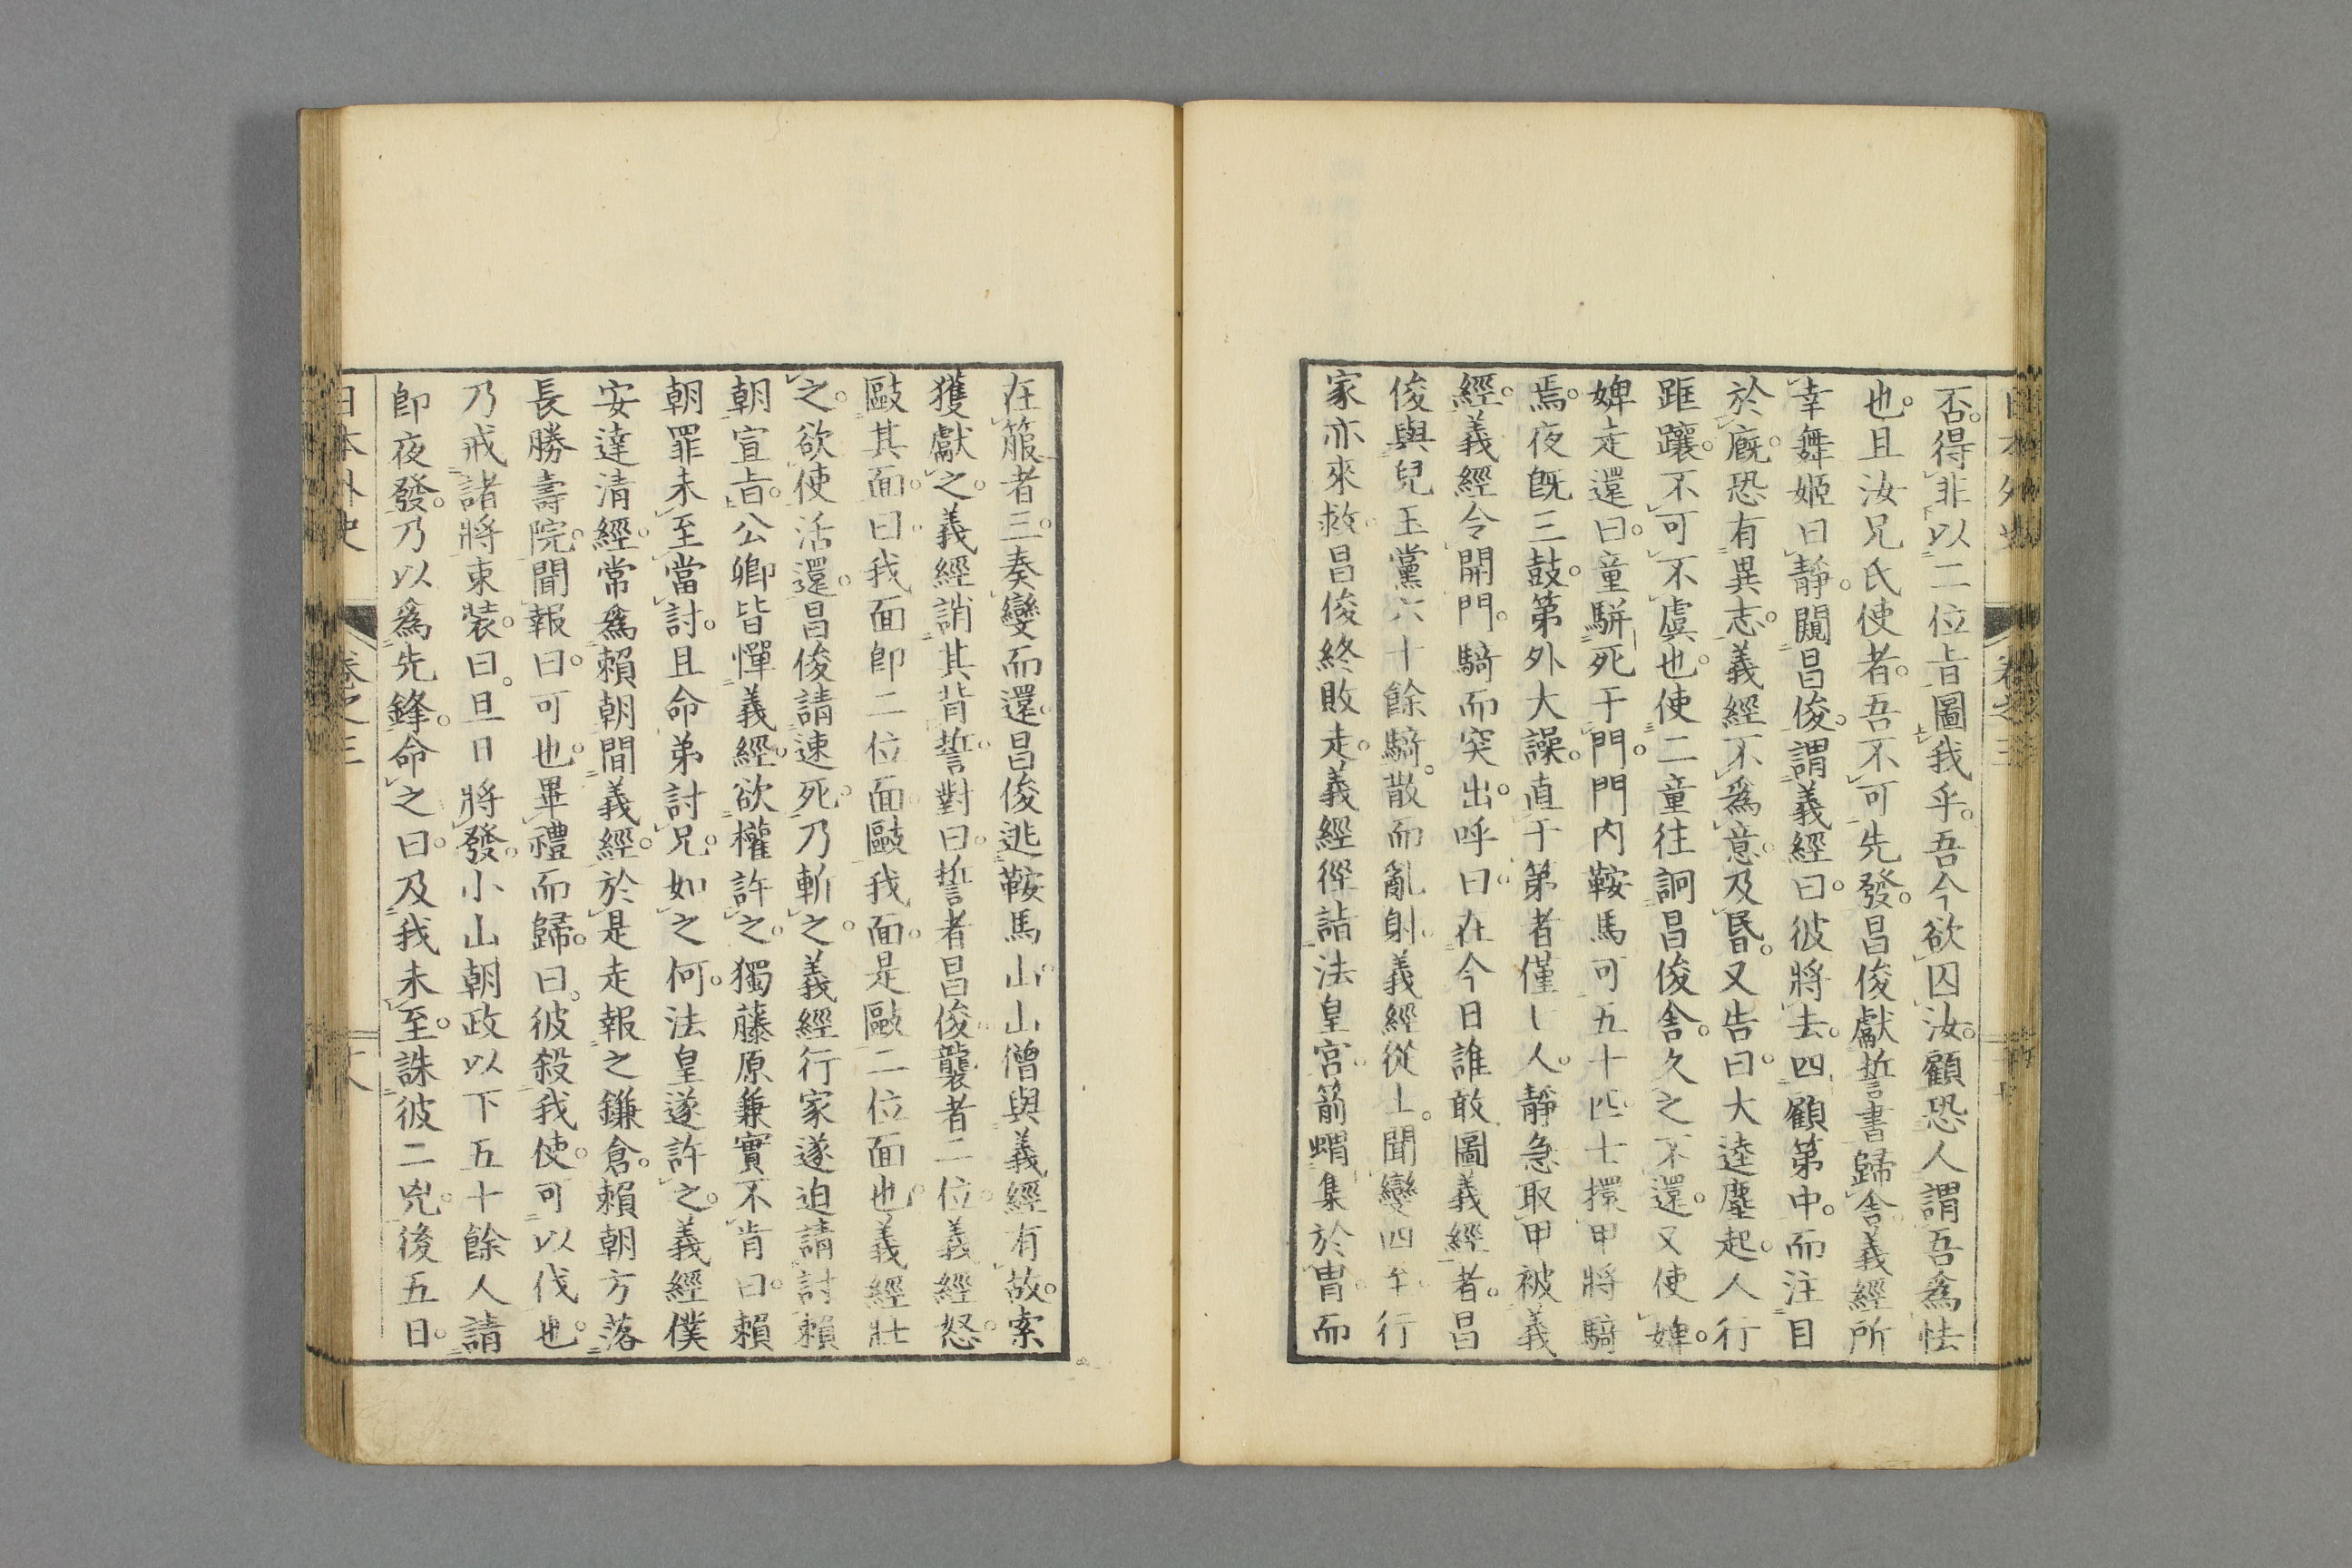 否。得非以二位旨圖我乎。吾今欲囚汝。顧恐人謂吾爲怯
也。且汝兄氏使者。吾不可先發。昌俊獻誓書歸舎。義經所
幸舞姬曰靜。闚昌俊。謂義經曰。彼將去。四顧第中。而注目
於廐。恐有異志。義經不爲意。及昏。又告曰。大逵塵起。人行
距躟。不可不虞也。使二童往詗昌俊舎。久之不還。又使婢。
婢走還曰。童駢死于門。門内鞍馬可五十匹。士擐甲將騎
焉。夜旣三鼓。第外大譟。直于第者僅七人。靜急取甲被義
經。義經令開門。騎而突出。呼曰。在今日誰敢圖義經者。昌
俊與兒玉黨六十餘騎。散而亂射。義經從士。聞變四至。行
家亦來救。昌俊終敗走。義經徑詣法皇宮。箭蝟集於冑。而
在箙者三。奏變而還。昌俊逃鞍馬山。山僧與義經有故。索
獲獻之。義經誚其背誓。對曰。誓者昌俊。襲者二位。義經怒。
毆其面。曰。我面卽二位面。毆我面。是毆二位面也。義經壯
之。欲使活還。昌俊請速死。乃斬之。義經行家遂迫請討賴
朝宣旨。公卿皆憚義經。欲權許之。獨藤原兼實不肯曰。賴
朝罪未至當討。且命弟討兄。如之何。法皇遂許之。義經僕
安達清經。常爲賴朝間義經。於是走報之鎌倉。賴朝方落
長勝壽院。聞報曰。可也。畢禮而歸。曰。彼殺我使。可以伐也。
乃戒諸將束装。曰。旦日將發。小山朝政以下五十餘人。請
卽夜發。乃以爲先鋒。命之曰。及我未至。誅彼二兇。後五日。
日本外史 卷之三